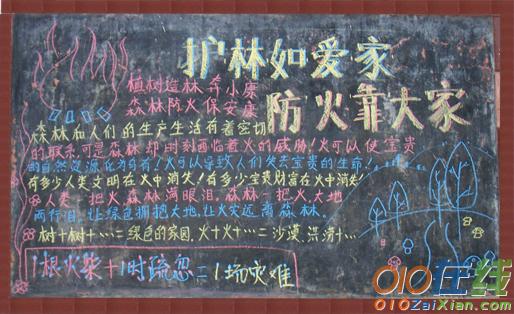 护林如爱家
防火靠大家
植树造林 奔小康
森林防火保安康
森林和人们的生产生活有着密切
的联系,可是森林却时刻面临着火的威胁!火可以使宝贵
的自然资源化为乌有!火可以导致人们失去宝贵的生命!
有多少人类文明在火中消失!有多少宝贵财富在火中消失!
人类一把火,森林满眼泪。森林一把火,大地
两行泪。让绿色拥抱大地,让火灾远离森林。
树+树+…=绿色的家园,火+火+…=沙漠、洪涝+…
1根火柴+1时疏忽=1场灾难
010在线
010ZaiXian.com